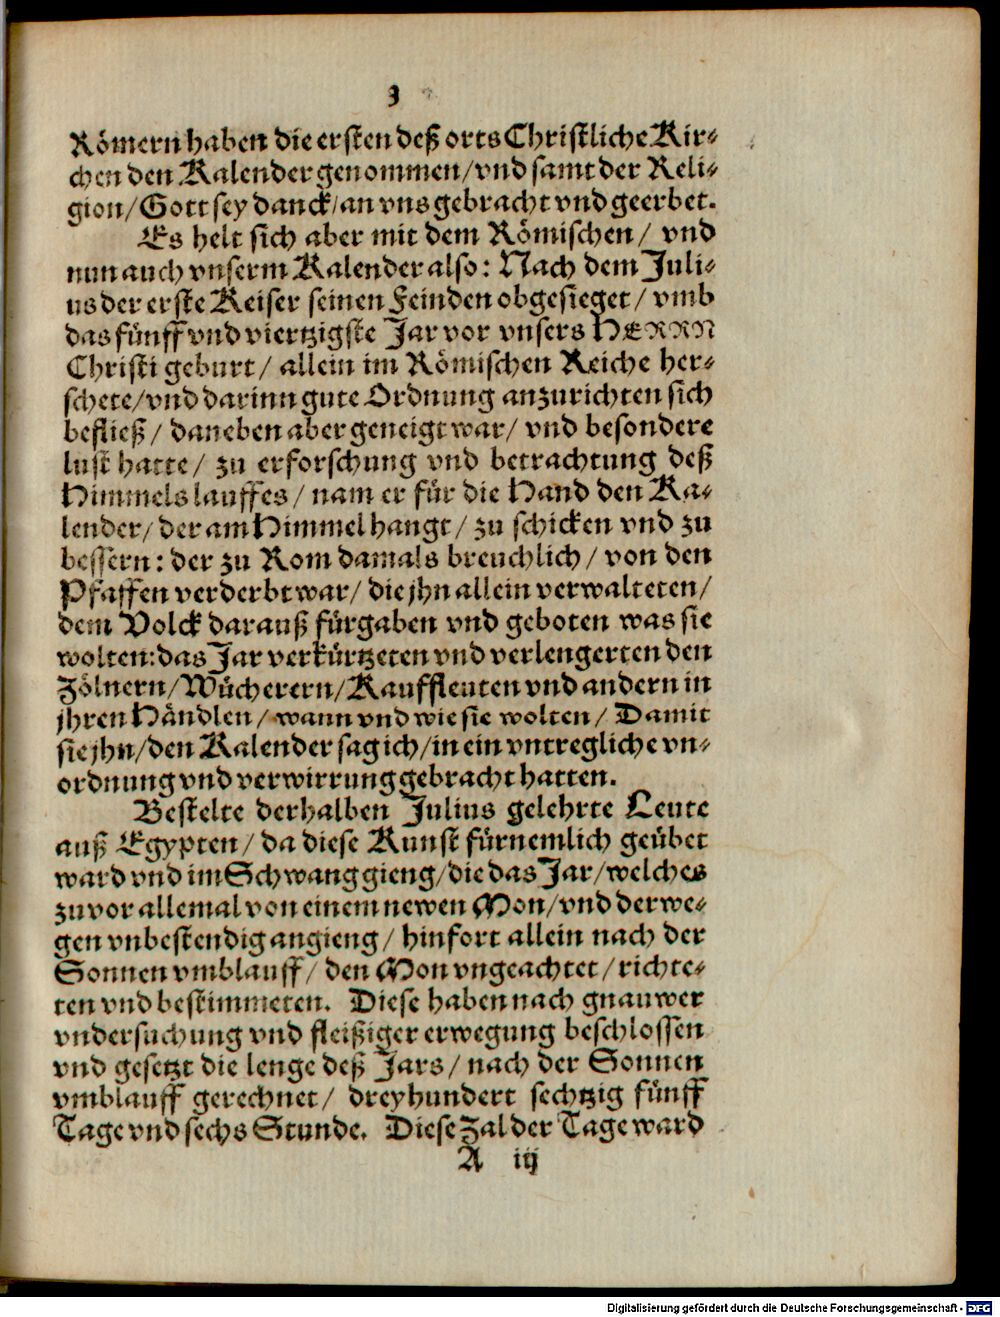 3
Römern haben die ersten deß orts Christliche Kir-
chen den Kalender genommen/vnd samt der Reli-
gion/Gott sey danck/an vns gebracht vnd geerbet.
Es helt sich aber mit dem Römischen/ vnd
nun auch vnserm Kalender also: Nach dem Juli-
us der erste Keiser seinen Feinden obgesieget/ vmb
das fünff vnd viertzigste Jar vor vnsers HERRN
Christi geburt/ allein im Römischen Reiche her-
schete/vnd darinn gute Ordnung anzurichten sich
befließ/ daneben aber geneigt war/ vnd besondere
lust hatte/ zu erforschung vnd betrachtung deß
Himmels lauffes/ nam er für die Hand den Ka-
lender/ der am Himmel hangt/ zu schicken vnd zu
bessern: der zu Rom damals breuchlich/ von den
Pfaffen verderbt war/ die jhn allein verwalteten/
dem Volck darauß fürgaben vnd geboten was sie
wolten: das Jar verkürtzeten vnd verlengerten den
Zölnern/Wücherern/Kauffleuten vnd andern in
jhren Händlen/ wann vnd wie sie wolten/ Damit
sie jhn/den Kalender sag ich/in ein vntregliche vn-
ordnung vnd verwirrung gebracht hatten.
Bestelte derhalben Julius gelehrte Leute
auß Egypten/ da diese Kunst fürnemlich geübet
ward vnd im Schwang gieng/die das Jar/welches
zuvor allemal von einem newen Mon/vnd derwe-
gen vnbestendig angieng/ hinfort allein nach der
Sonnen vmblauff/ den Mon vngeachtet/richte-
ten vnd bestimmeten. Diese haben nach gnauwer
vndersuchung vnd fleißiger erwegung beschlossen
vnd gesetzt die lenge deß Jars/ nach der Sonnen
vmblauff gerechnet/ dreyhundert sechtzig fünff
Tage vnd sechs Stunde. Diese Zal der Tage ward
A iij
Digitalisierung gefördert durch die Deutsche Forschungsgemeinschaft - DFG